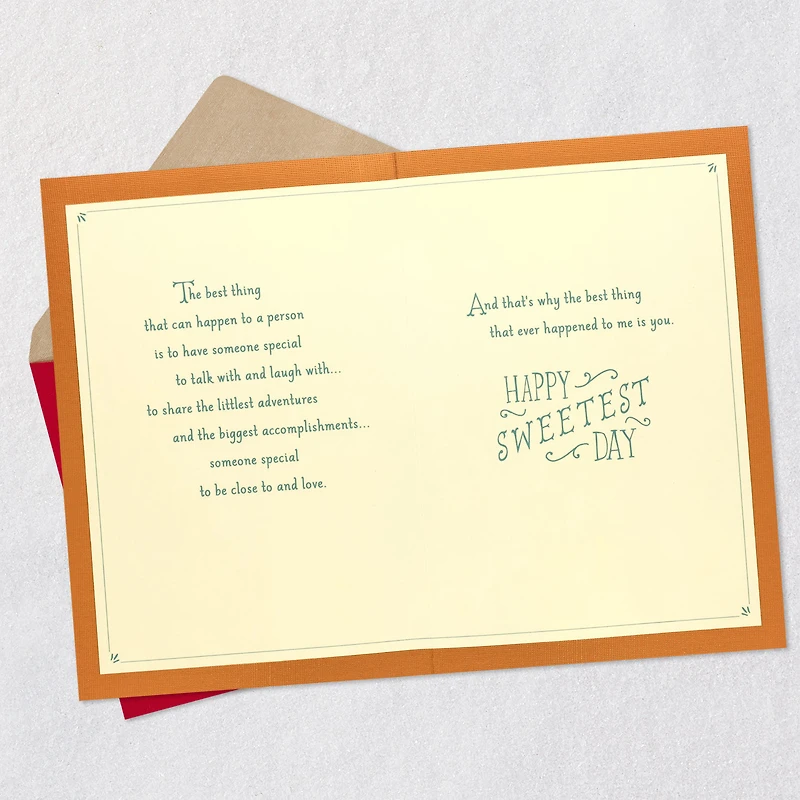 The best thing
that can happen to a person
is to have someone special
to talk with and laugh with...
to share the littlest adventures
and the biggest accomplishments...
someone special
to be close to and love.
And that's why the best thing
that ever happened to me is you.
HAPPY
SWEETEST
DAY